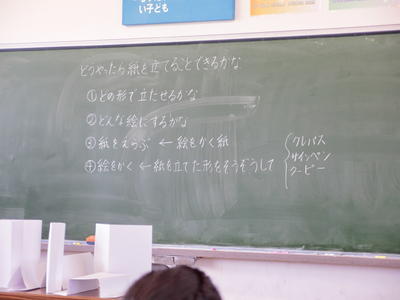 い子ども
どうやったら紙を立てることできるかな
①どの形で立たせるかな
②どんな絵にするかな
③紙をえらぶ ← 絵をかく紙
④絵をかく ← 紙を立てた形をそうぞうして
クレパス
サインペン
クーピー